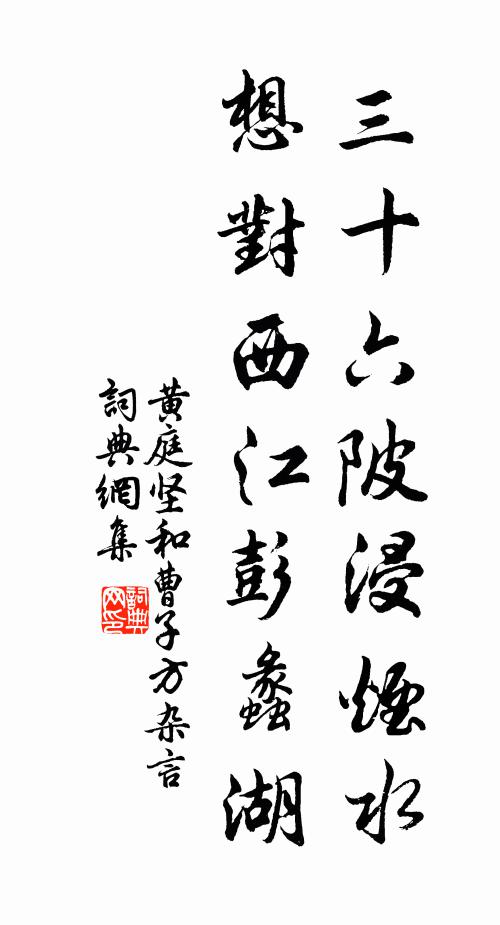 三十六陂浸煙水
想對西江彭蠡湖
黄庭坚和曹子方杂言
詞典網集
詞典网印